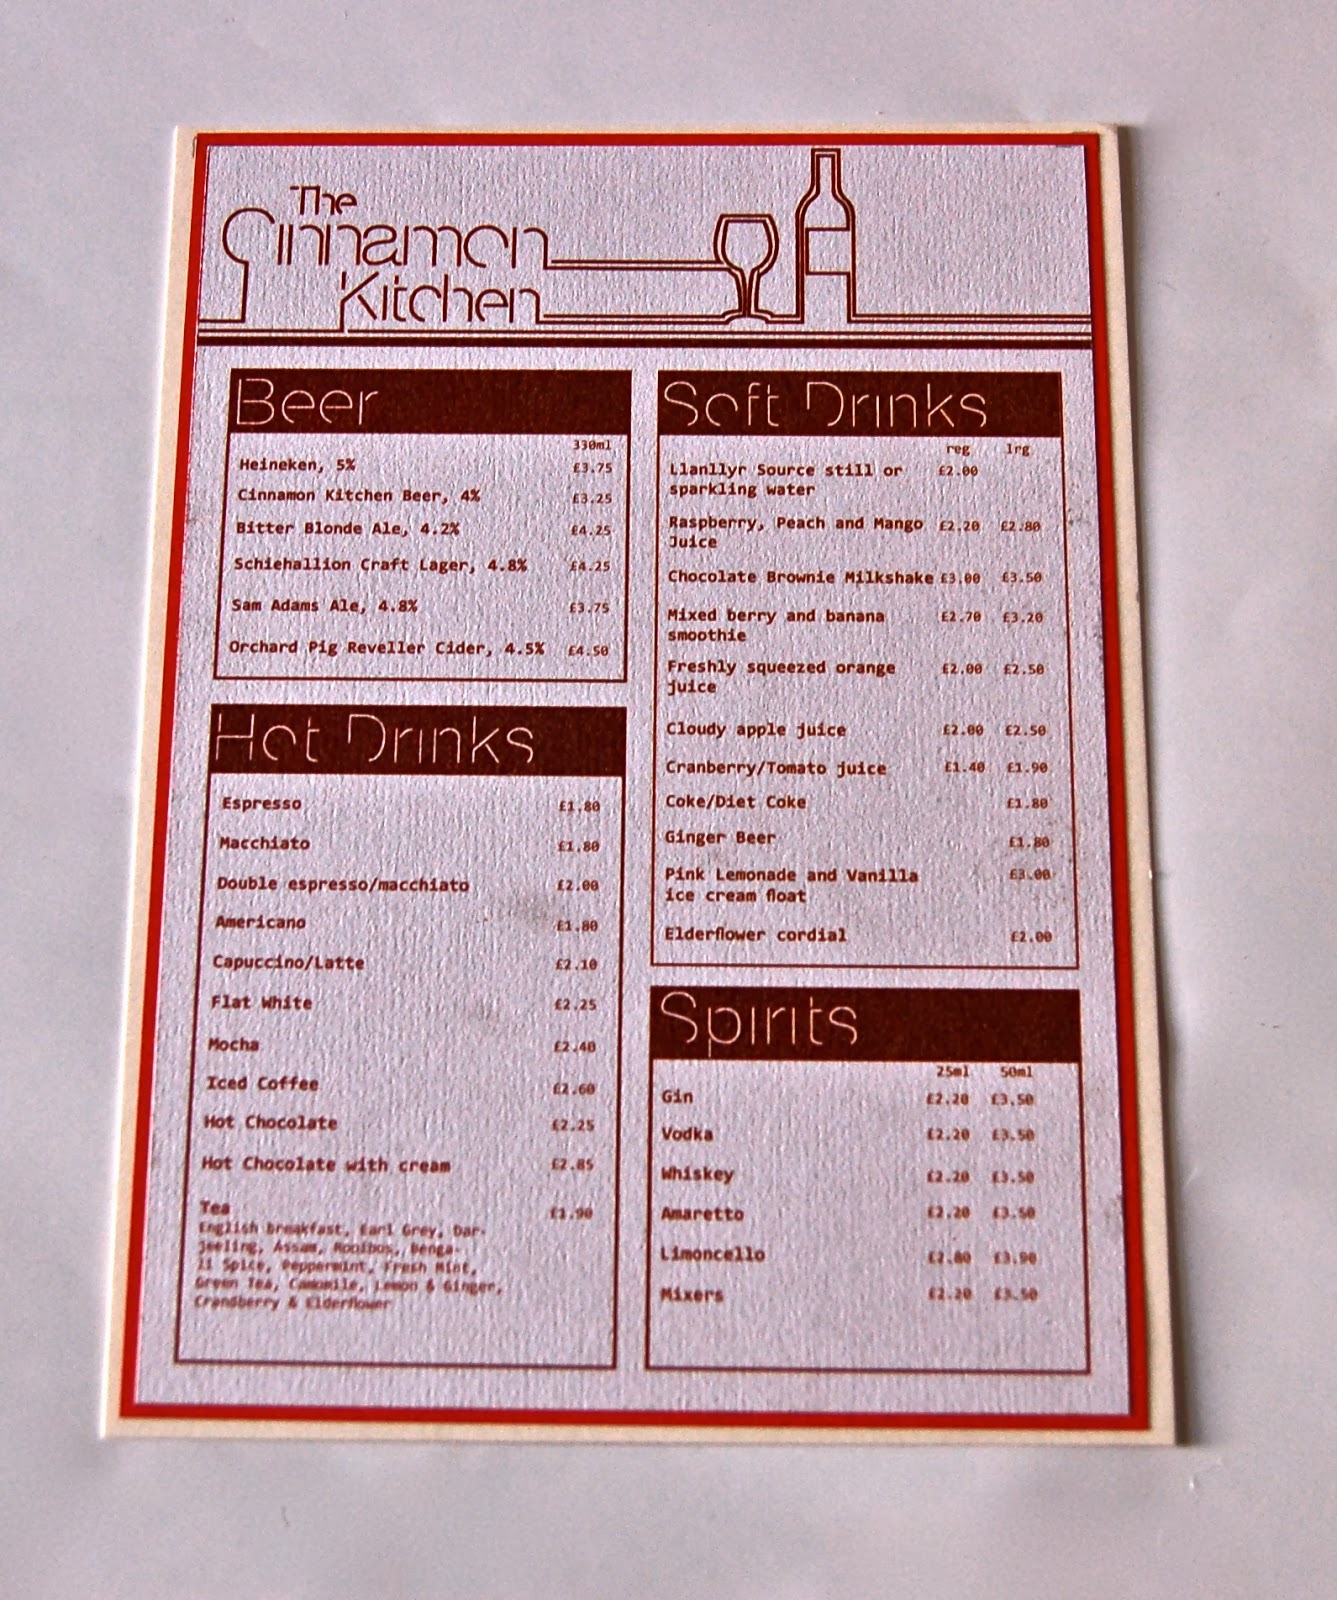 The
Cinnamon
Kitchen
Beer
330ml
Heineken, 5% £3.75
Cinnamon Kitchen Beer, 4% £3.25
Bitter Blonde Ale, 4.2% £4.25
Schiehallion Craft Lager, 4.8% £4.25
Sam Adams Ale, 4.8% £3.75
Orchard Pig Reveller Cider, 4.5% £4.50
Hot Drinks
Espresso £1.80
Macchiato £1.80
Double espresso/macchiato £2.00
Americano £1.80
Capuccino/Latte £2.10
Flat White £2.25
Mocha £2.40
Iced Coffee £2.60
Hot Chocolate £2.25
Hot Chocolate with cream £2.85
Tea £1.90
English breakfast, Earl Grey, Dar-
jeeling, Assam, Rooibos, Benga-
li Spice, Peppermint, Fresh Mint,
Green Tea, Camomile, Lemon & Ginger,
Crandberry & Elderflower
Soft Drinks
reg lrg
Llanllyr Source still or £2.00
sparkling water
Raspberry, Peach and Mango £2.20 £2.80
Juice
Chocolate Brownie Milkshake £3.00 £3.50
Mixed berry and banana £2.70 £3.20
smoothie
Freshly squeezed orange £2.00 £2.50
juice
Cloudy apple juice £2.00 £2.50
Cranberry/Tomato juice £1.40 £1.90
Coke/Diet Coke £1.80
Ginger Beer £1.80
Pink Lemonade and Vanilla £3.00
ice cream float
Elderflower cordial £2.00
Spirits
25ml 50ml
Gin £2.20 £3.50
Vodka £2.20 £3.50
Whiskey £2.20 £3.50
Amaretto £2.20 £3.50
Limoncello £2.80 £3.90
Mixers £2.20 £3.50